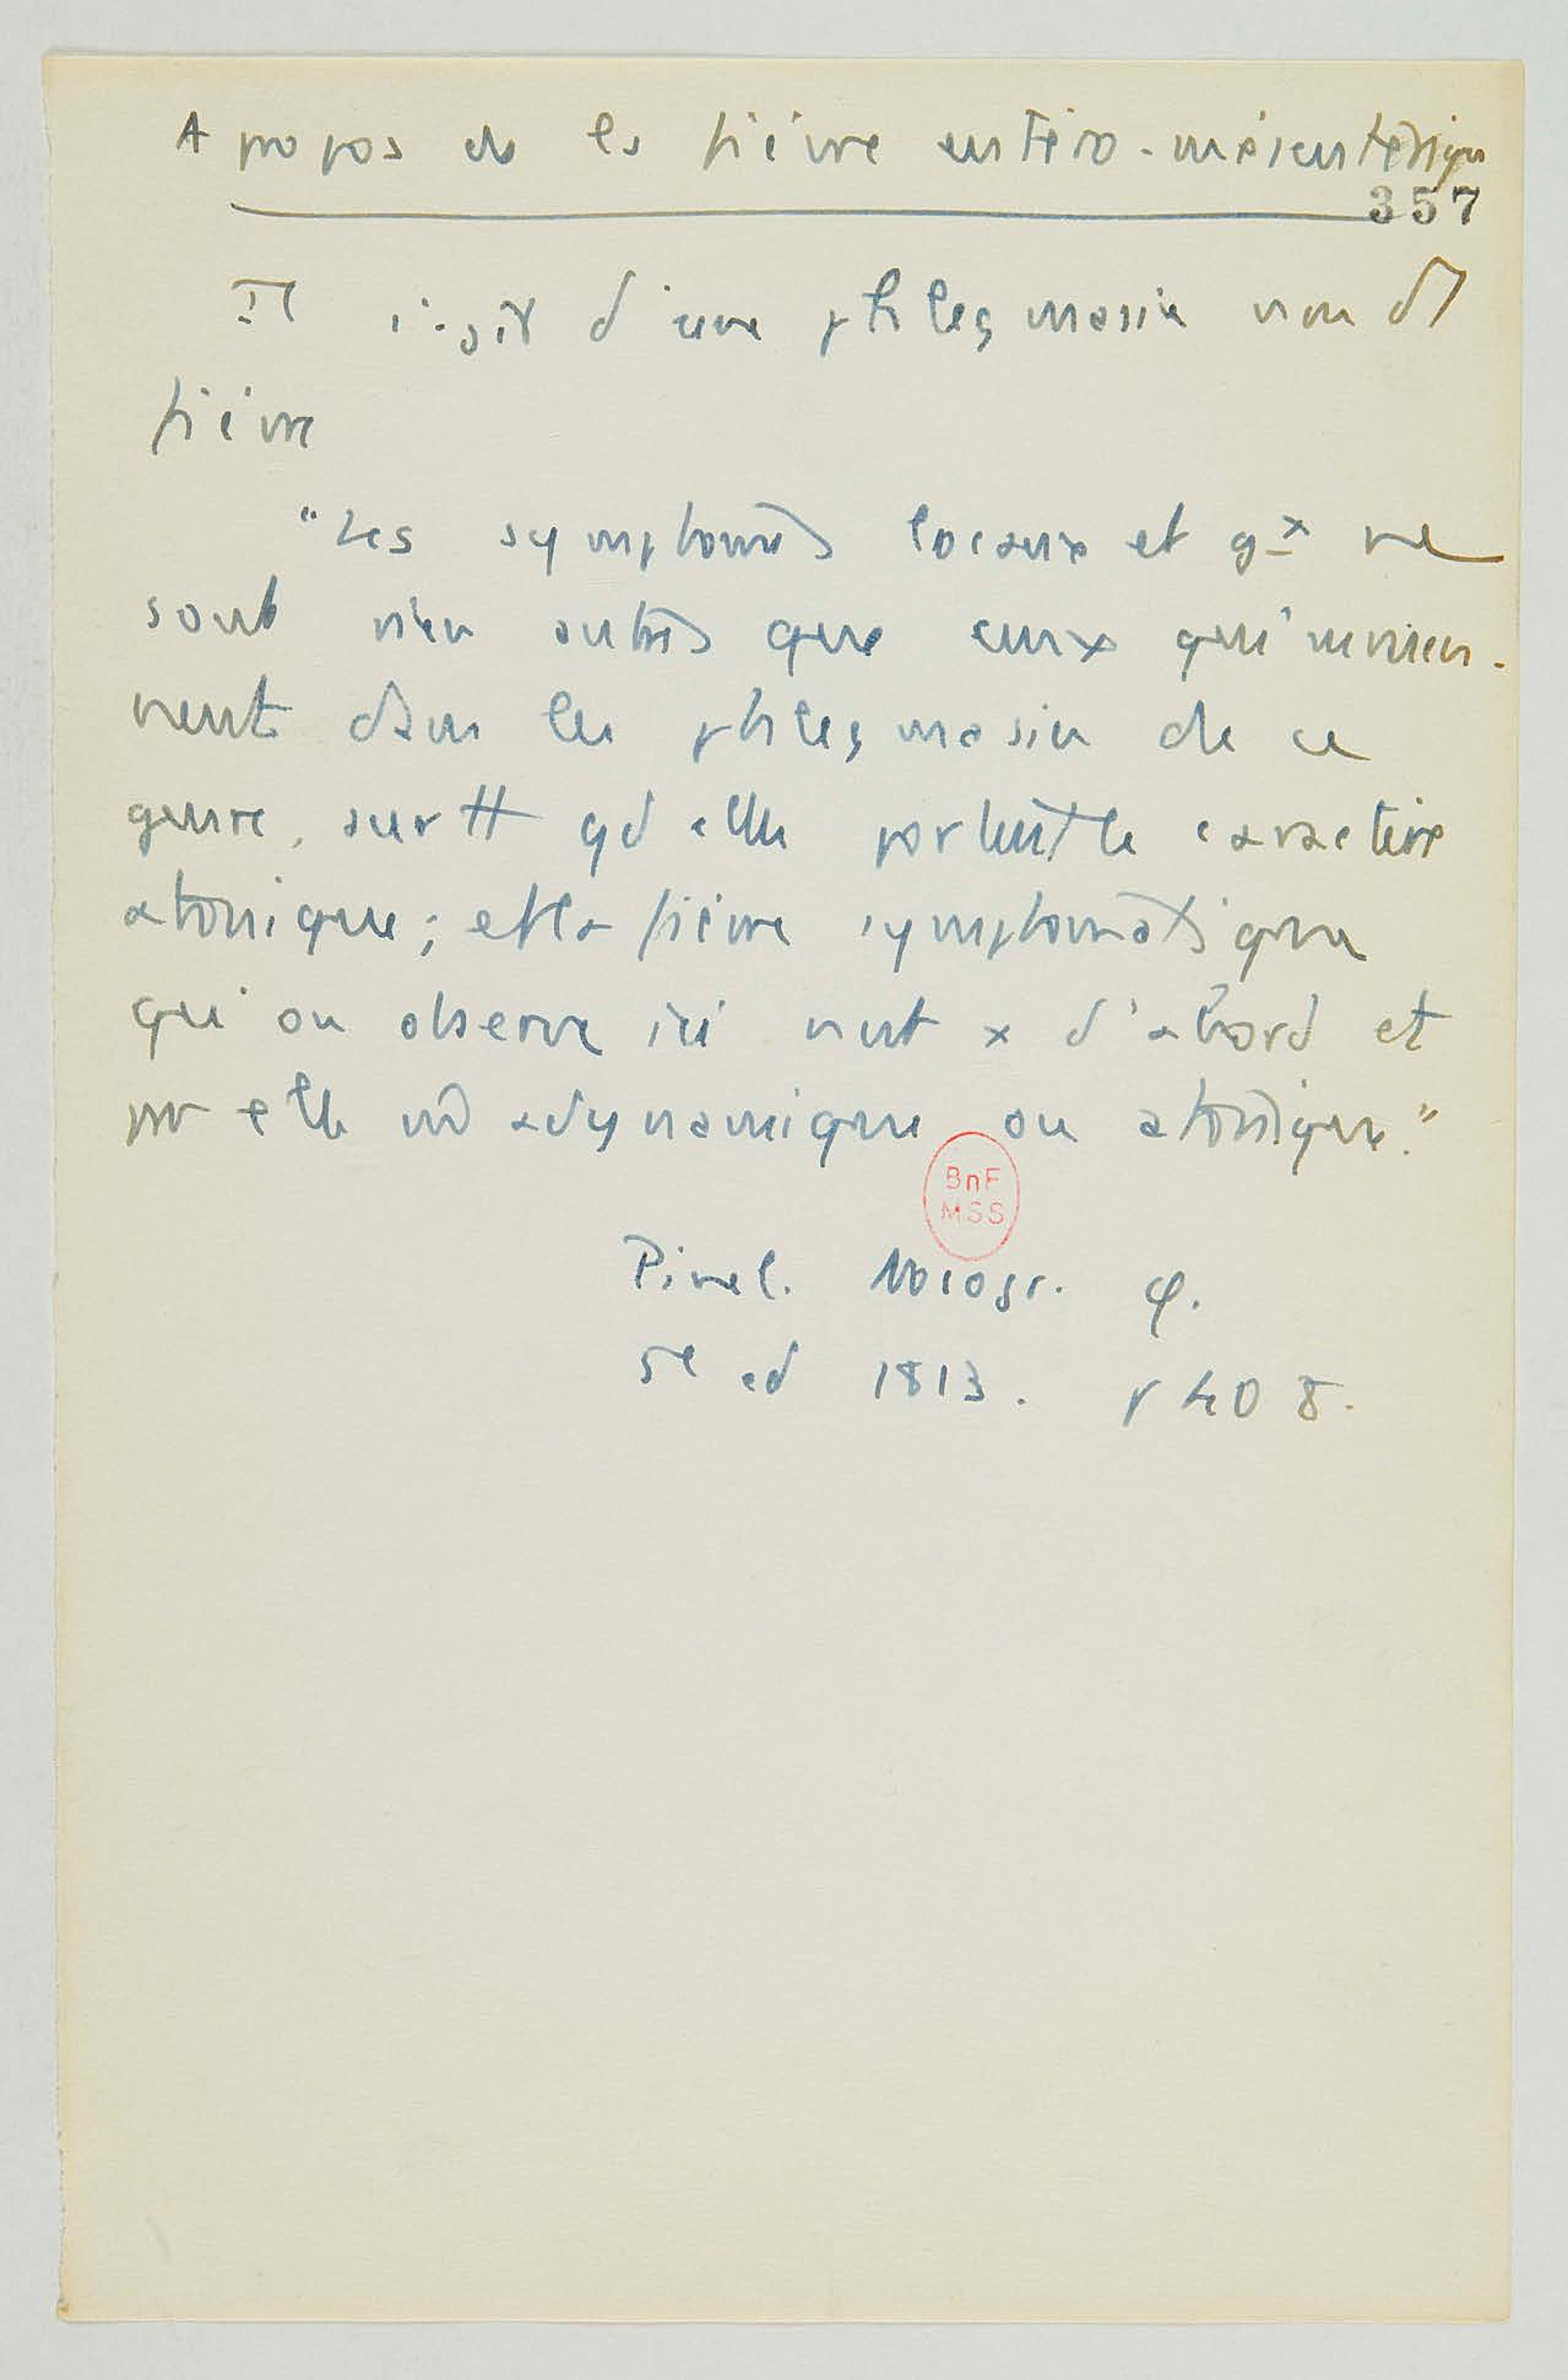 A propos de la fièvre entéro-mésentérique
357
Il s'agit d'une phlegmasie non d'1
fièvre
"Les symptomes locaux et gx ne
sont rien autres que ceux qui survien-
nent dans les phlegmasies de ce
genre, surtt qd elles portent le caractère
atonique; et la fièvre symptomatique
qu'on observe ici n'est x d'abord et
par elle m̂ adynamique ou atonique."
BnF
MSS
Pinel. Nosogr. φ.
5e ed 1813. p 408.